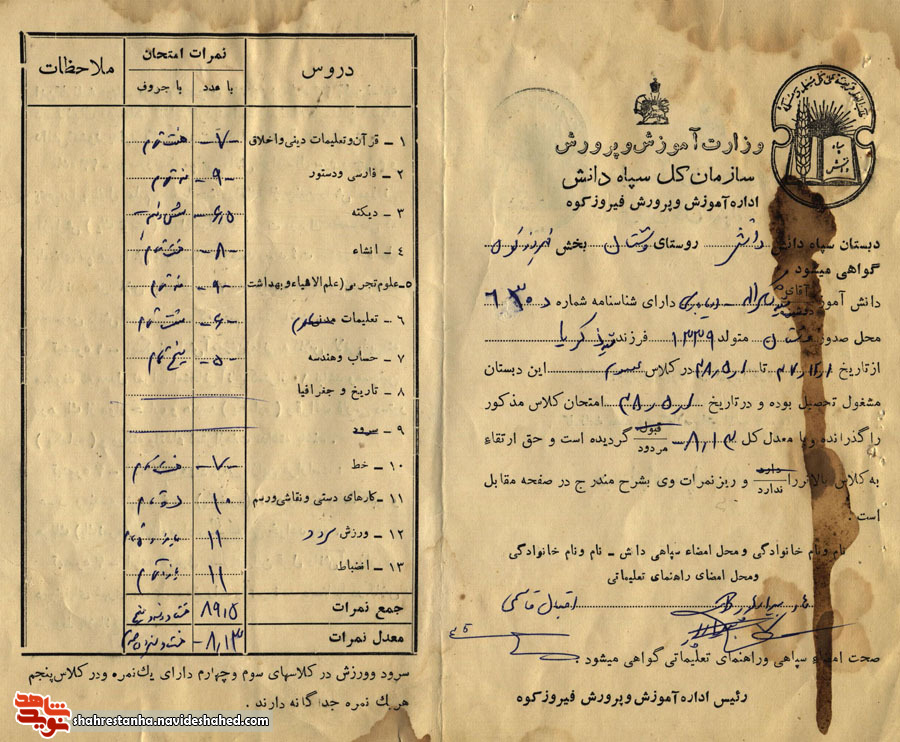 وزارت آموزش و پرورش
سازمان کل سپاه دانش
اداره آموزش و پرورش فیروزکوه
سپاه دانش
دبستان سپاه دانش دانش روستای وشتان بخش فیروزکوه
گواهی میشود
دانش آموز آقای دارای شناسنامه شماره ۶۳۰
محل صدور وشتان متولد ۱۳۳۹ فرزند ذکریا
از تاریخ تا ۴۸٫۵٫۱ در کلاس این دبستان
مشغول تحصیل بوده و در تاریخ ۴۸٫۵٫۱ امتحان کلاس مذکور
را گذرانده و با معدل کل ۸٫۱۳ قبول مردود گردیده است و حق ارتقاء
به کلاس بالاتر را دارد ندارد و ریز نمرات وی بشرح مندرج در صفحه مقابل
است .
نام ونام خانوادگی و محل امضاء سپاهی دانش - نام ونام خانوادگی
ومحل امضای راهنمای تعلیماتی
اقبال قاسمی
صحت امضاء سپاهی وراهنمای تعلیماتی گواهی میشود .
رئیس اداره آموزش و پرورش فیروزکوه
دروس نمرات امتحان ملاحظات
با عدد با حروف
۱ - قرآن و تعلیمات دینی و اخلاقی -۷- هفت تمام
۲ - فارسی ودستور -۹- نه تمام
۳ - دیکته ۶٫۵
۴ - انشاء -۸- هشت تمام
۵-علوم تجربی (علم الاشیاء و بهداشت -۹- نه تمام
۶ - تعلیمات مدنی -۶- شش تمام
۷ - حساب وهندسه -۵- پنج تمام
۸ - تاریخ و جغرافیا
۹ - سرود
۱۰ - خط -۷- هفت تمام
۱۱ - کارهای دستی و نقاشی ورسم ۱۰ ده تمام
۱۲ - ورزش سرود ۱۱ یازده تمام
۱۳ - انضباط ۱۱ یازده تمام
جمع نمرات ۸۹٫۵
معدل نمرات ۸٫۱۳
سرود وورزش در کلاسهای سوم وچهارم دارای یك نمره ودر کلاس پنجم
هر یك نمره جداگانه دارند .
نوید شاهد
shahrestanha.navideshahed.com